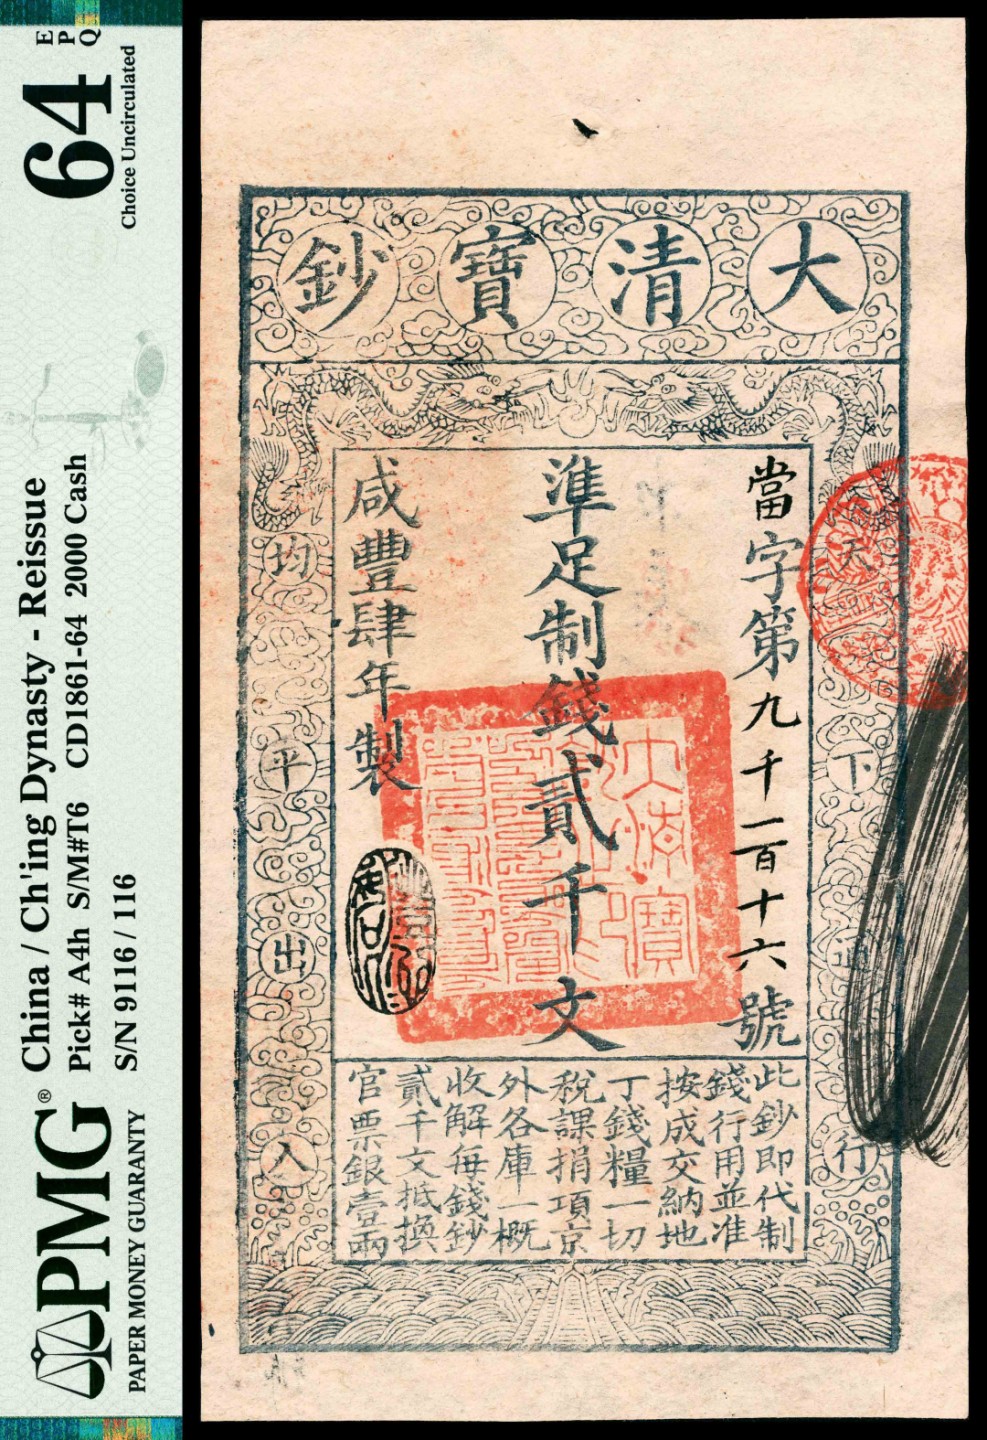 PMG® China / Ch'ing Dynasty - Reissue
Pick# A4h S/M#T6 CD1861-64 2000 Cash
PAPER MONEY GUARANTY S/N 9116 / 116
64 EPQ
Choice Uncirculated
大清寶鈔
當字第九千一百十六號
準足制錢貳千文
咸豐肆年製
天下通行
均平出入
此鈔即代制
錢行用並准
按成交納地
丁錢糧一切
稅課捐項京
外各庫一概
收解每錢鈔
貳千文抵換
官票銀壹兩
大清寶